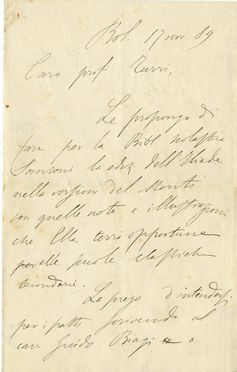 Bol. 17 nov. 89
Caro prof. Turri,
Le propongo di
fare per la Bibl. scolastica
Sansoni la ediz. dell'Iliade
nella version del Monti
con quelle note e illustrazioni
che Ella terrà opportune
per le scuole classiche
secondarie.
La prego d'intendersi
per i patti scrivendo al
cav. Guido Biagi